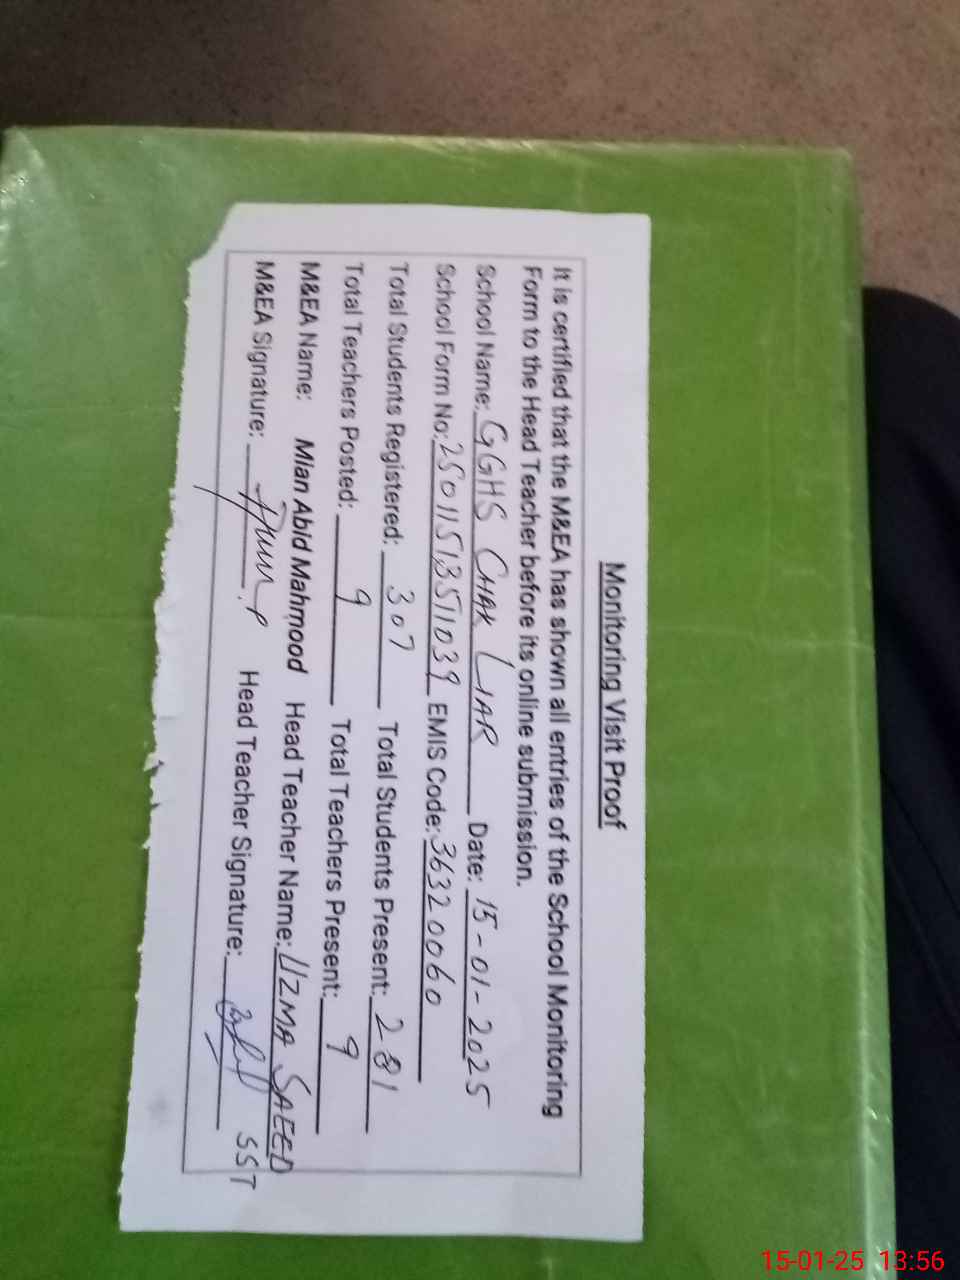 Monitoring Visit Proof
It is certified that the M&EA has shown all entries of the School Monitoring
Form to the Head Teacher before its online submission.
School Name: GGHS CHAK LIAR Date: 15-01-2025
School Form No: 25011513511039 EMIS Code: 36320060
Total Students Registered: 307 Total Students Present: 281
Total Teachers Posted: 9 Total Teachers Present: 9
M&EA Name: Mian Abid Mahmood Head Teacher Name: UZMA SAEED
M&EA Signature: Head Teacher Signature: SST
15-01-25 13:56